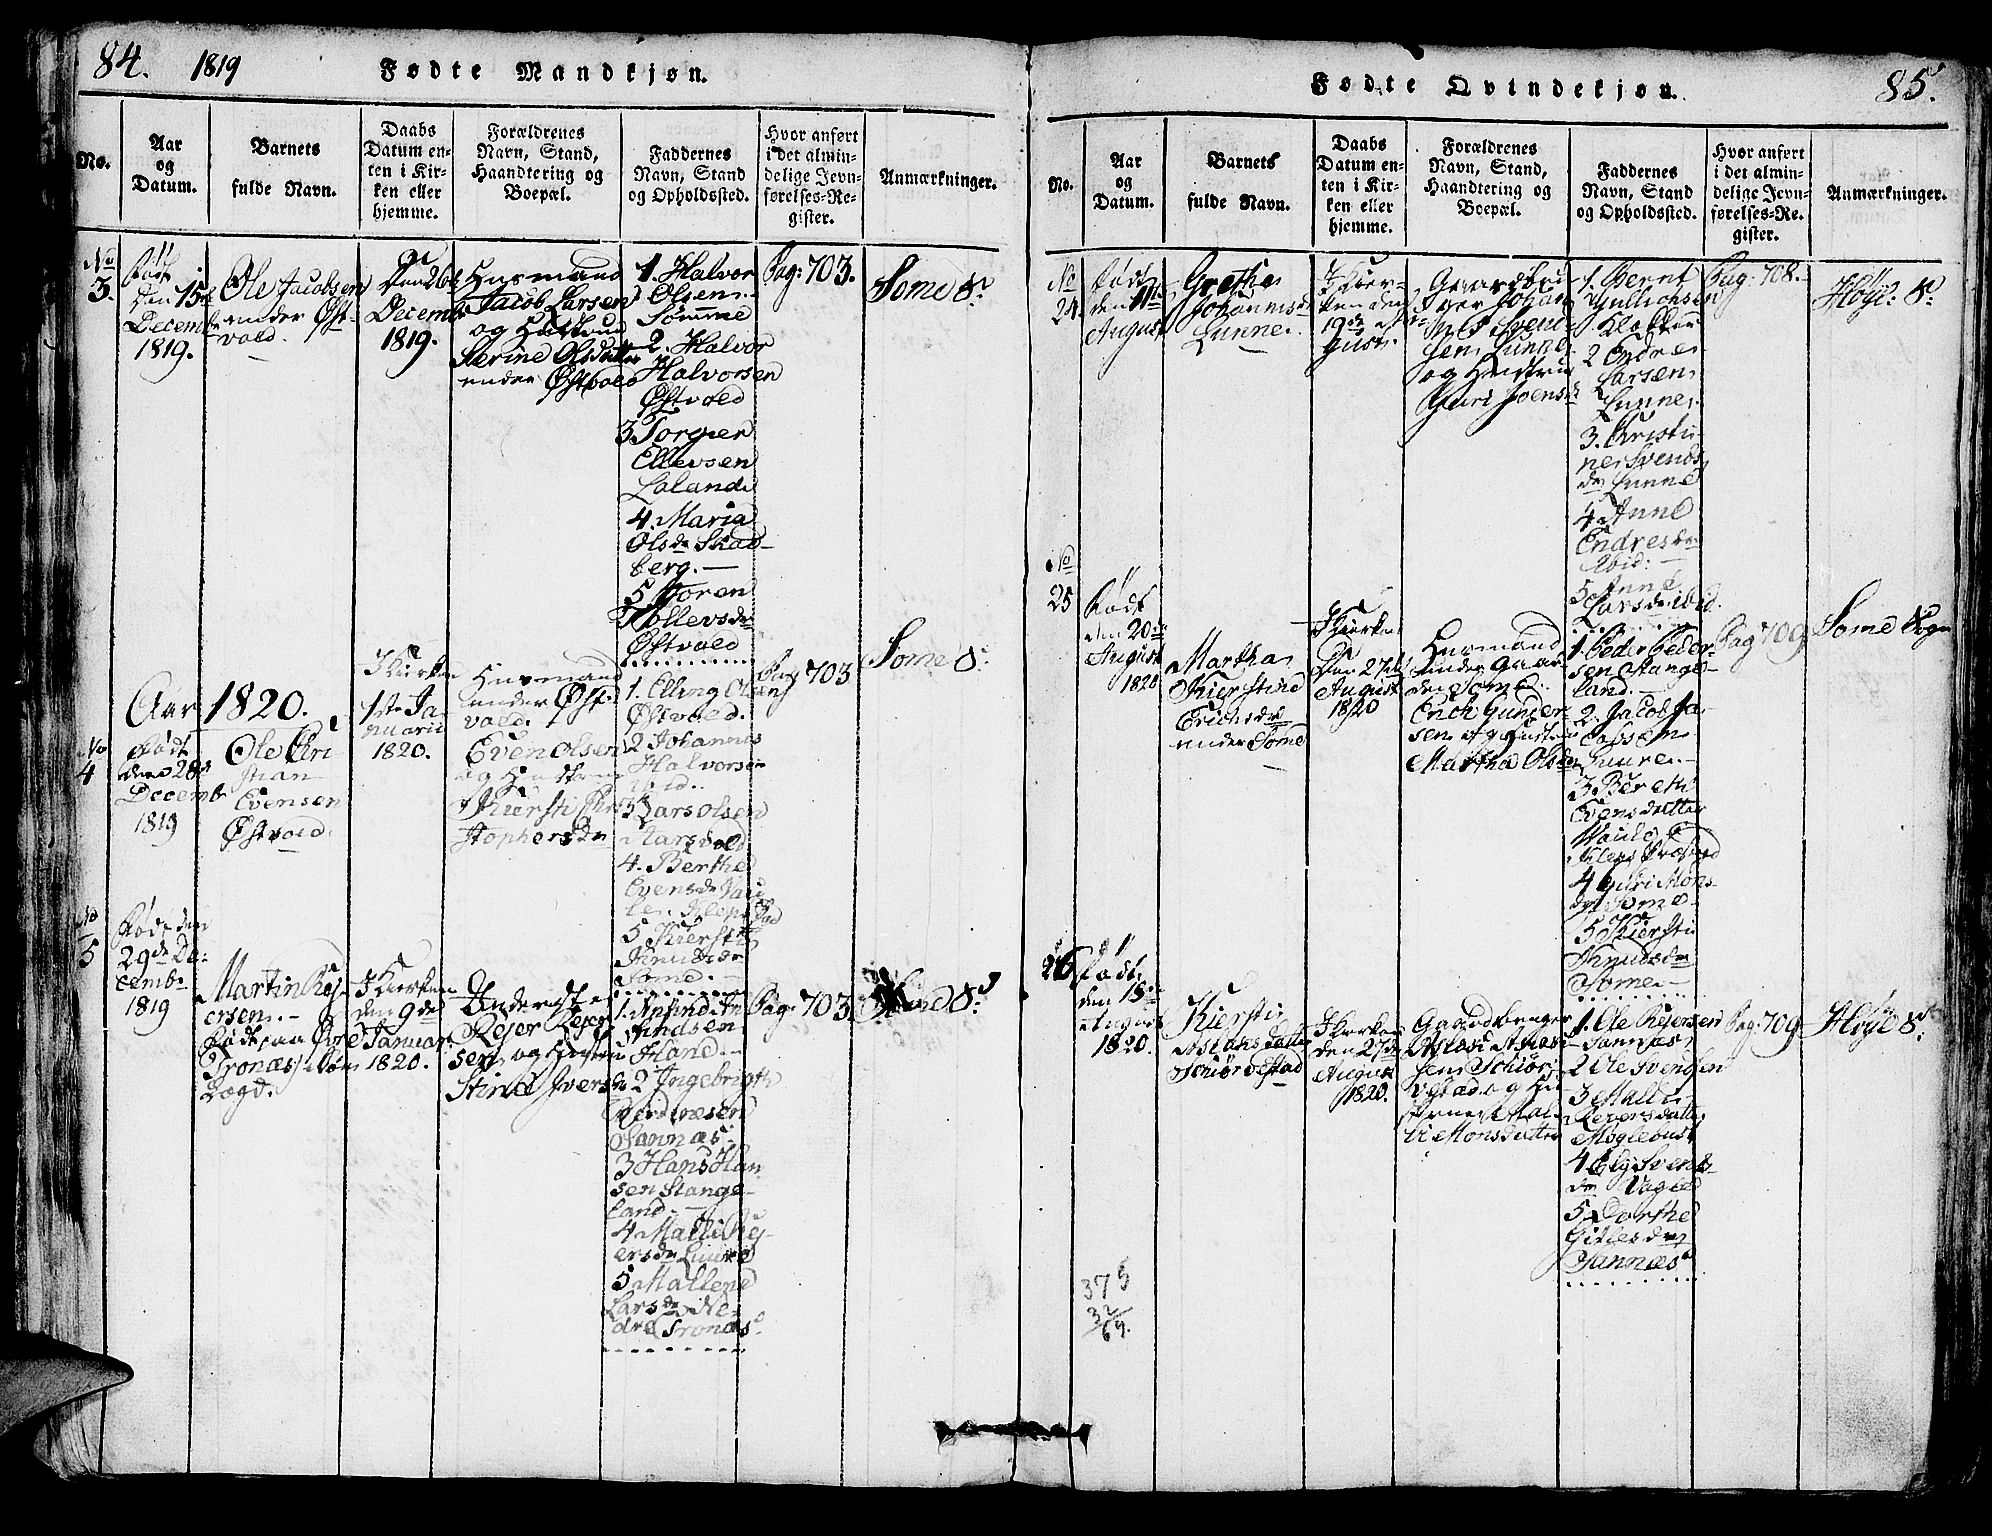 84. 1819 Fødte Mandkjøn.
No.
Aar
og
Datum.
Barnets
fulde Navn.
Daabs
Datum en-
ten i Kir-
ken eller
hjemme.
Forældrenes
Navn, Stand,
Haandtering og
Boepæl.
Faddernes
Navn, Stand
og Opholdssted.
Hvor anført
i det almin-
delige Jevn-
førelses-Re-
gister.
Anmærkninger.
No
3.
Født
den 15de
Decemb
1819.
Ole Jacobsen
under Øst-
vold.
Den 26de
Decemb
1819.
Husmand
Jacob Larsen
og Hustrue
Serine Olsdatter
under Østvold
1. Halvor
Olsen
Sømme
2. Halvor
Halvorsen
Østvold
3 Torger
Ellevsen
Lalande
4. Maria
Olsdr Skad-
berg. —
5
Tollevsdr
Østvold
Pag: 703.
Some S.
Aar 1820.
No
4
Født
den 28de
Decemb
1819
Ole Chri
stian
Evensen
Østvold.
I Kirken
1ste Ja-
nuarii
1820.
Husmand
under Øst-
vold.
Even Olsen
og Hustrue
Kiersti Chri
stophersdr
1. Elling Olsen
Østvold.
2 Johannes
Halvorsen
ibid.
3 Lars Olsen
4. Berthe
Evensdr
5 Kiersti
Knudsdr
Some. —
Pag 703
Some S.
No
5
Født den
29de De-
cembr
1819
Martin Rej-
ersen. —
Født paa Øvre
Tronæs
I Kirken
den 9de
Januari
1820.
Rejer Rejer
sen og Hustru
Stine Iversdr
1.
Hand. —
2 Ingebrigth
Sannæs
3 Hans Han
sen Stange-
land. —
4 Malli Rej-
ersdr Luure
5 Mallene
Larsdr Ne-
dre Tronæs.
Pag: 703.
Fødte Qvindekjøn. 85.
No.
Aar
og
Datum.
Barnets
fulde Navn.
Daabs
Datum en-
ten i Kir-
ken eller
hjemme.
Forældrenes
Navn, Stand,
Haandtering og
Boepæl.
Faddernes
Navn, Stand
og Opholdssted.
Hvor anført
i det almin-
delige Jevn-
førelses-Re-
gister.
Anmærkninger.
No
24
Født
den 11te
August
Grethe
Johannisdr
Lunne.
I Kier-
ken den
Gaardbru
ger Johan
nes Svend-
sen Lunne
og Hustrue
Guri Joensdr
1. Bernt
Klokker
2 Endre
Larsen
Lunne.
3. Christi-
ne Svends
dr Lunne
4 Anne
Endresdr
ibid. —
5 Anne
Larsdr ibid.
Pag: 708.
Høyl. S.
No
25
Født
den 20de
August
1820
Martha
Kierstine
Erichsdr
under Some
I Kierken
Den 27de
August
1820
Husmand
under Gaar
den Some
Erich Gunder
sen og Hustrue
Martha Olsdr
1 Peder Peder-
sen Stange-
land. —
2. Jacob Ja-
cobsen
Luure. —
3 Berethe
Evensdatter
4 Guri Mons
dr Some
5 Kiersti
Knudsdr
Some. —
Pag 709
Some Sogn
26
Født
den 18de
August
1820.
Kiersti
Aslaksdatter
Schiørvestad
I Kierken
den 27de
August
1820.
Gaardbruger
sen Schiør-
vestad og Hu-
strue Mal-
li Monsdatter
1. Ole Rejersen
Sannæs
2 Ole Svendsen
3 Malli
Rejersdatter
Møglebust
4 Elg Svends
dr
5 Dorthe
Gitlesdr
Sannæs
Pag: 709
Høyl S.
375
32
69.